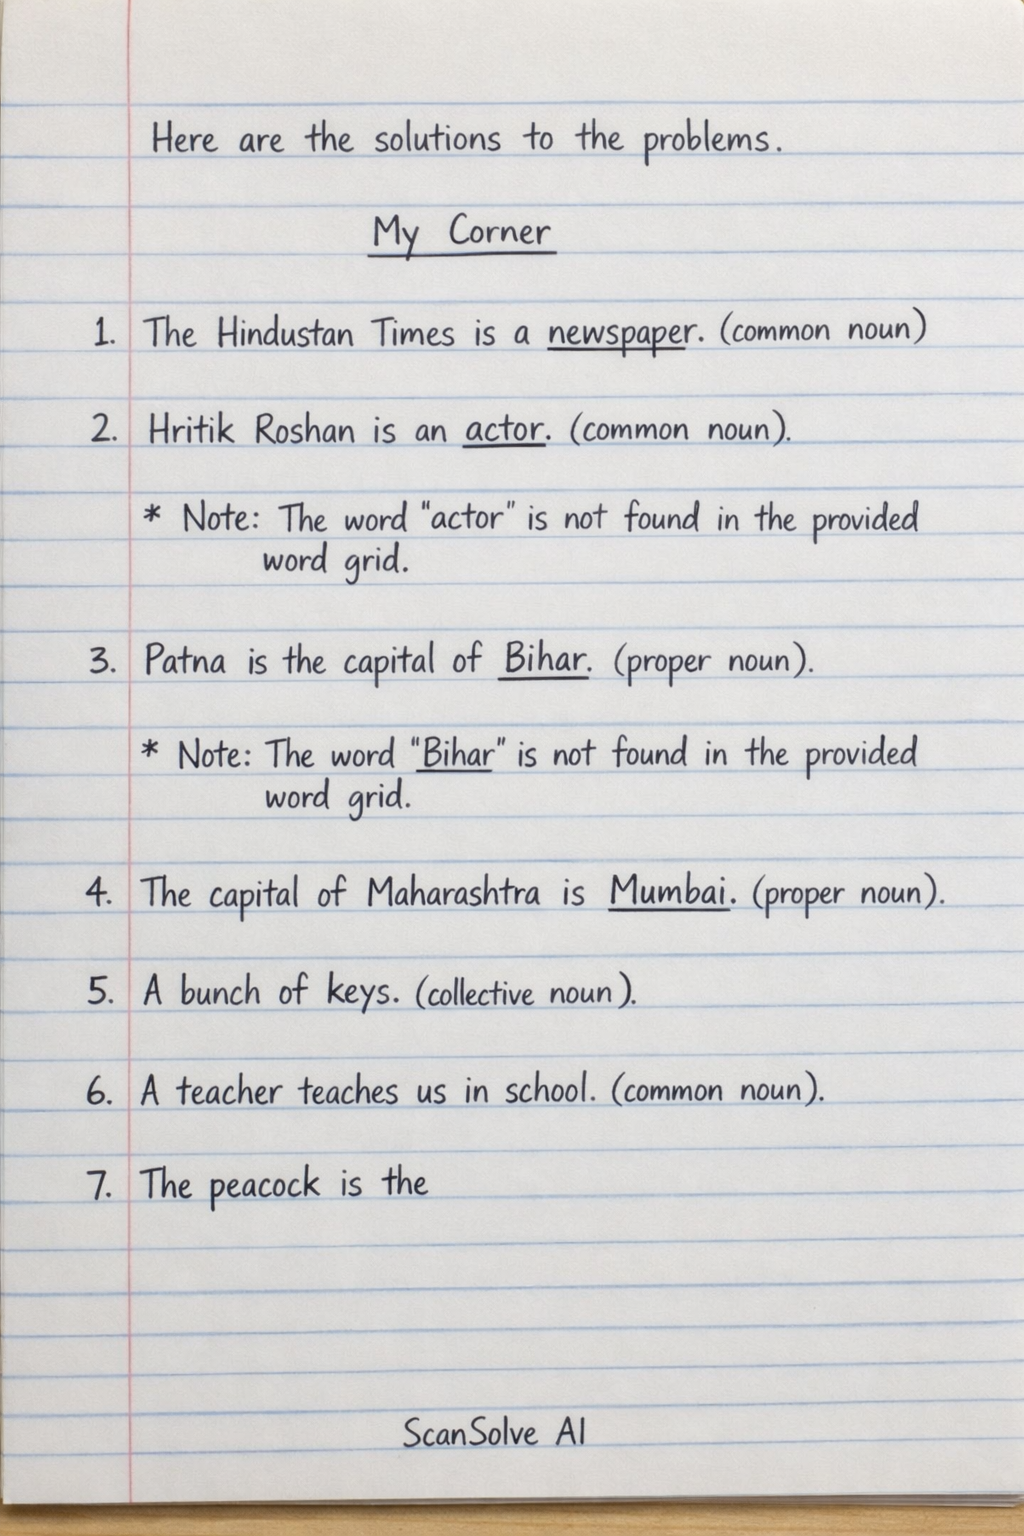 Here are the solutions to the problems.
My Corner
1. The Hindustan Times is a newspaper. (common noun)
2. Hritik Roshan is an actor. (common noun).
* Note: The word "actor" is not found in the provided
word grid.
3. Patna is the capital of Bihar. (proper noun).
* Note: The word "Bihar" is not found in the provided
word grid.
4. The capital of Maharashtra is Mumbai. (proper noun).
5. A bunch of keys. (collective noun).
6. A teacher teaches us in school. (common noun).
7. The peacock is the
ScanSolve AI